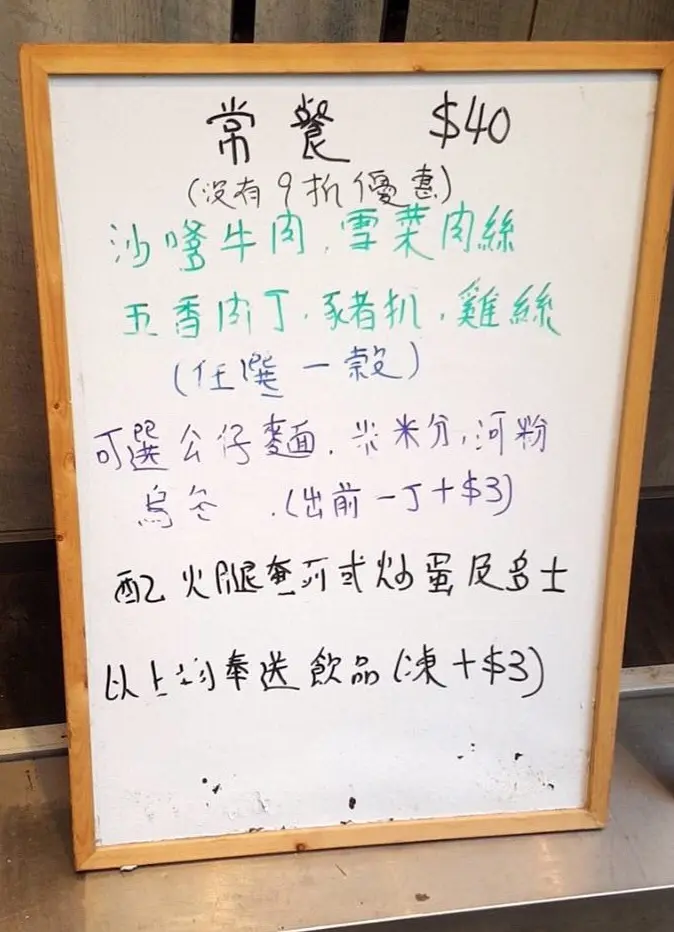 常餐 $40
(沒有9折優惠)
沙嗲牛肉,雪菜肉絲
五香肉丁,豬扒,雞絲
(任選一款)
可選公仔麵,米粉,河粉
烏冬,(出前一丁+$3)
配火腿煎雙或炒蛋及多士
以上均奉送飲品(凍+$3)